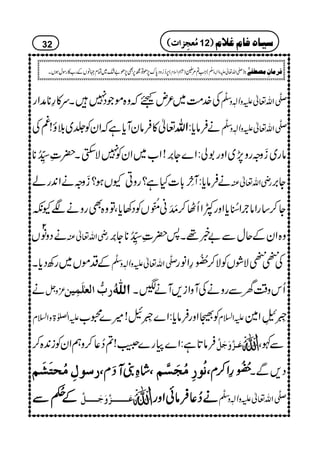 32 سیاہ فام غلام (12 مُعجِزات)
فرمانِ مصطَفٰے (صلَّی اللہ تعالٰی علیہ واٰلہٖ وسلَّم)
صلَّی اللہ تعالٰی علیہ واٰلہٖ وسلَّم کی خدمت میں عرض کیجئے کہ وہ موجود نہیں ہیں۔ سرکارِ نامدار
صلَّی اللہ تعالٰی علیہ واٰلہٖ وسلَّم نے فرمایا: اللہ تعالٰی کا فرمان آیا ہے کہ ان کو جلدی بلاؤ! غم کی
ماری زَوجہ رو پڑی اور بولی: اے جابر! اب میں ان کو نہیں لاسکتی۔ حضرتِ سیِّدُنا
جابر رضی اللہ تعالٰی عنہ نے فرمایا: آخِر بات کیا ہے؟ روتی کیوں ہو؟ زَوجہ نے اندر لے
جا کر سارا ماجرا سنایا اور کپڑا اُٹھا کر مَدَنی مُنّوں کو دکھایا، تو وہ بھی رونے لگے کیونکہ
وہ ان کے حال سے بے خبر تھے۔ پس حضرتِ سیِّدُنا جابر رضی اللہ تعالٰی عنہ نے دونوں
کی ننھی ننھی لاشوں کو لا کر حُضُورِ انور صلَّی اللہ تعالٰی علیہ واٰلہٖ وسلَّم کے قدموں میں رکھ دیا۔
اُس وقت گھر سے رونے کی آوازیں آنے لگیں۔ اللہُ ربُّ العٰلَمِین عزوجل نے
جبرئیلِ امین علیہ السلام کو بھیجا اور فرمایا: اے جبرئیل! میرے محبوب علیہ الصلوٰۃ والسلام
سے کہو، اللہ عَزَّوَجَلَّ فرماتا ہے: اے پیارے حبیب! تم دُعا کرو ہم ان کو زندہ کر
دیں گے۔ حُضُورِ اکرم، نُورِ مُجَسَّم، شاہِ بنی آدم، رسولِ مُحتَشَم
صلَّی اللہ تعالٰی علیہ واٰلہٖ وسلَّم نے دُعا فرمائی اور اللہ عَزَّوَجَلَّ کے حُکْم سے